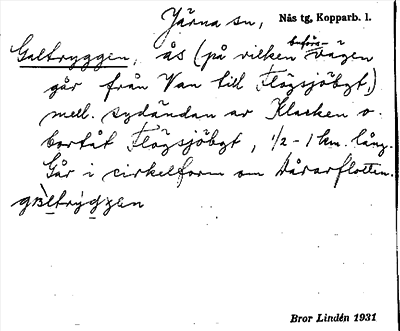 Järna sn, Nås tg, Kopparb. l.
Galtryggen, ås (på vilken vägen
går från Van till Flögsjöbgt,)
mell. sydändan av Klacken o.
bortåt Flögsjöbgt, 1/2 - 1 km. lång.
Går i cirkelform om
Bror Lindén 1931